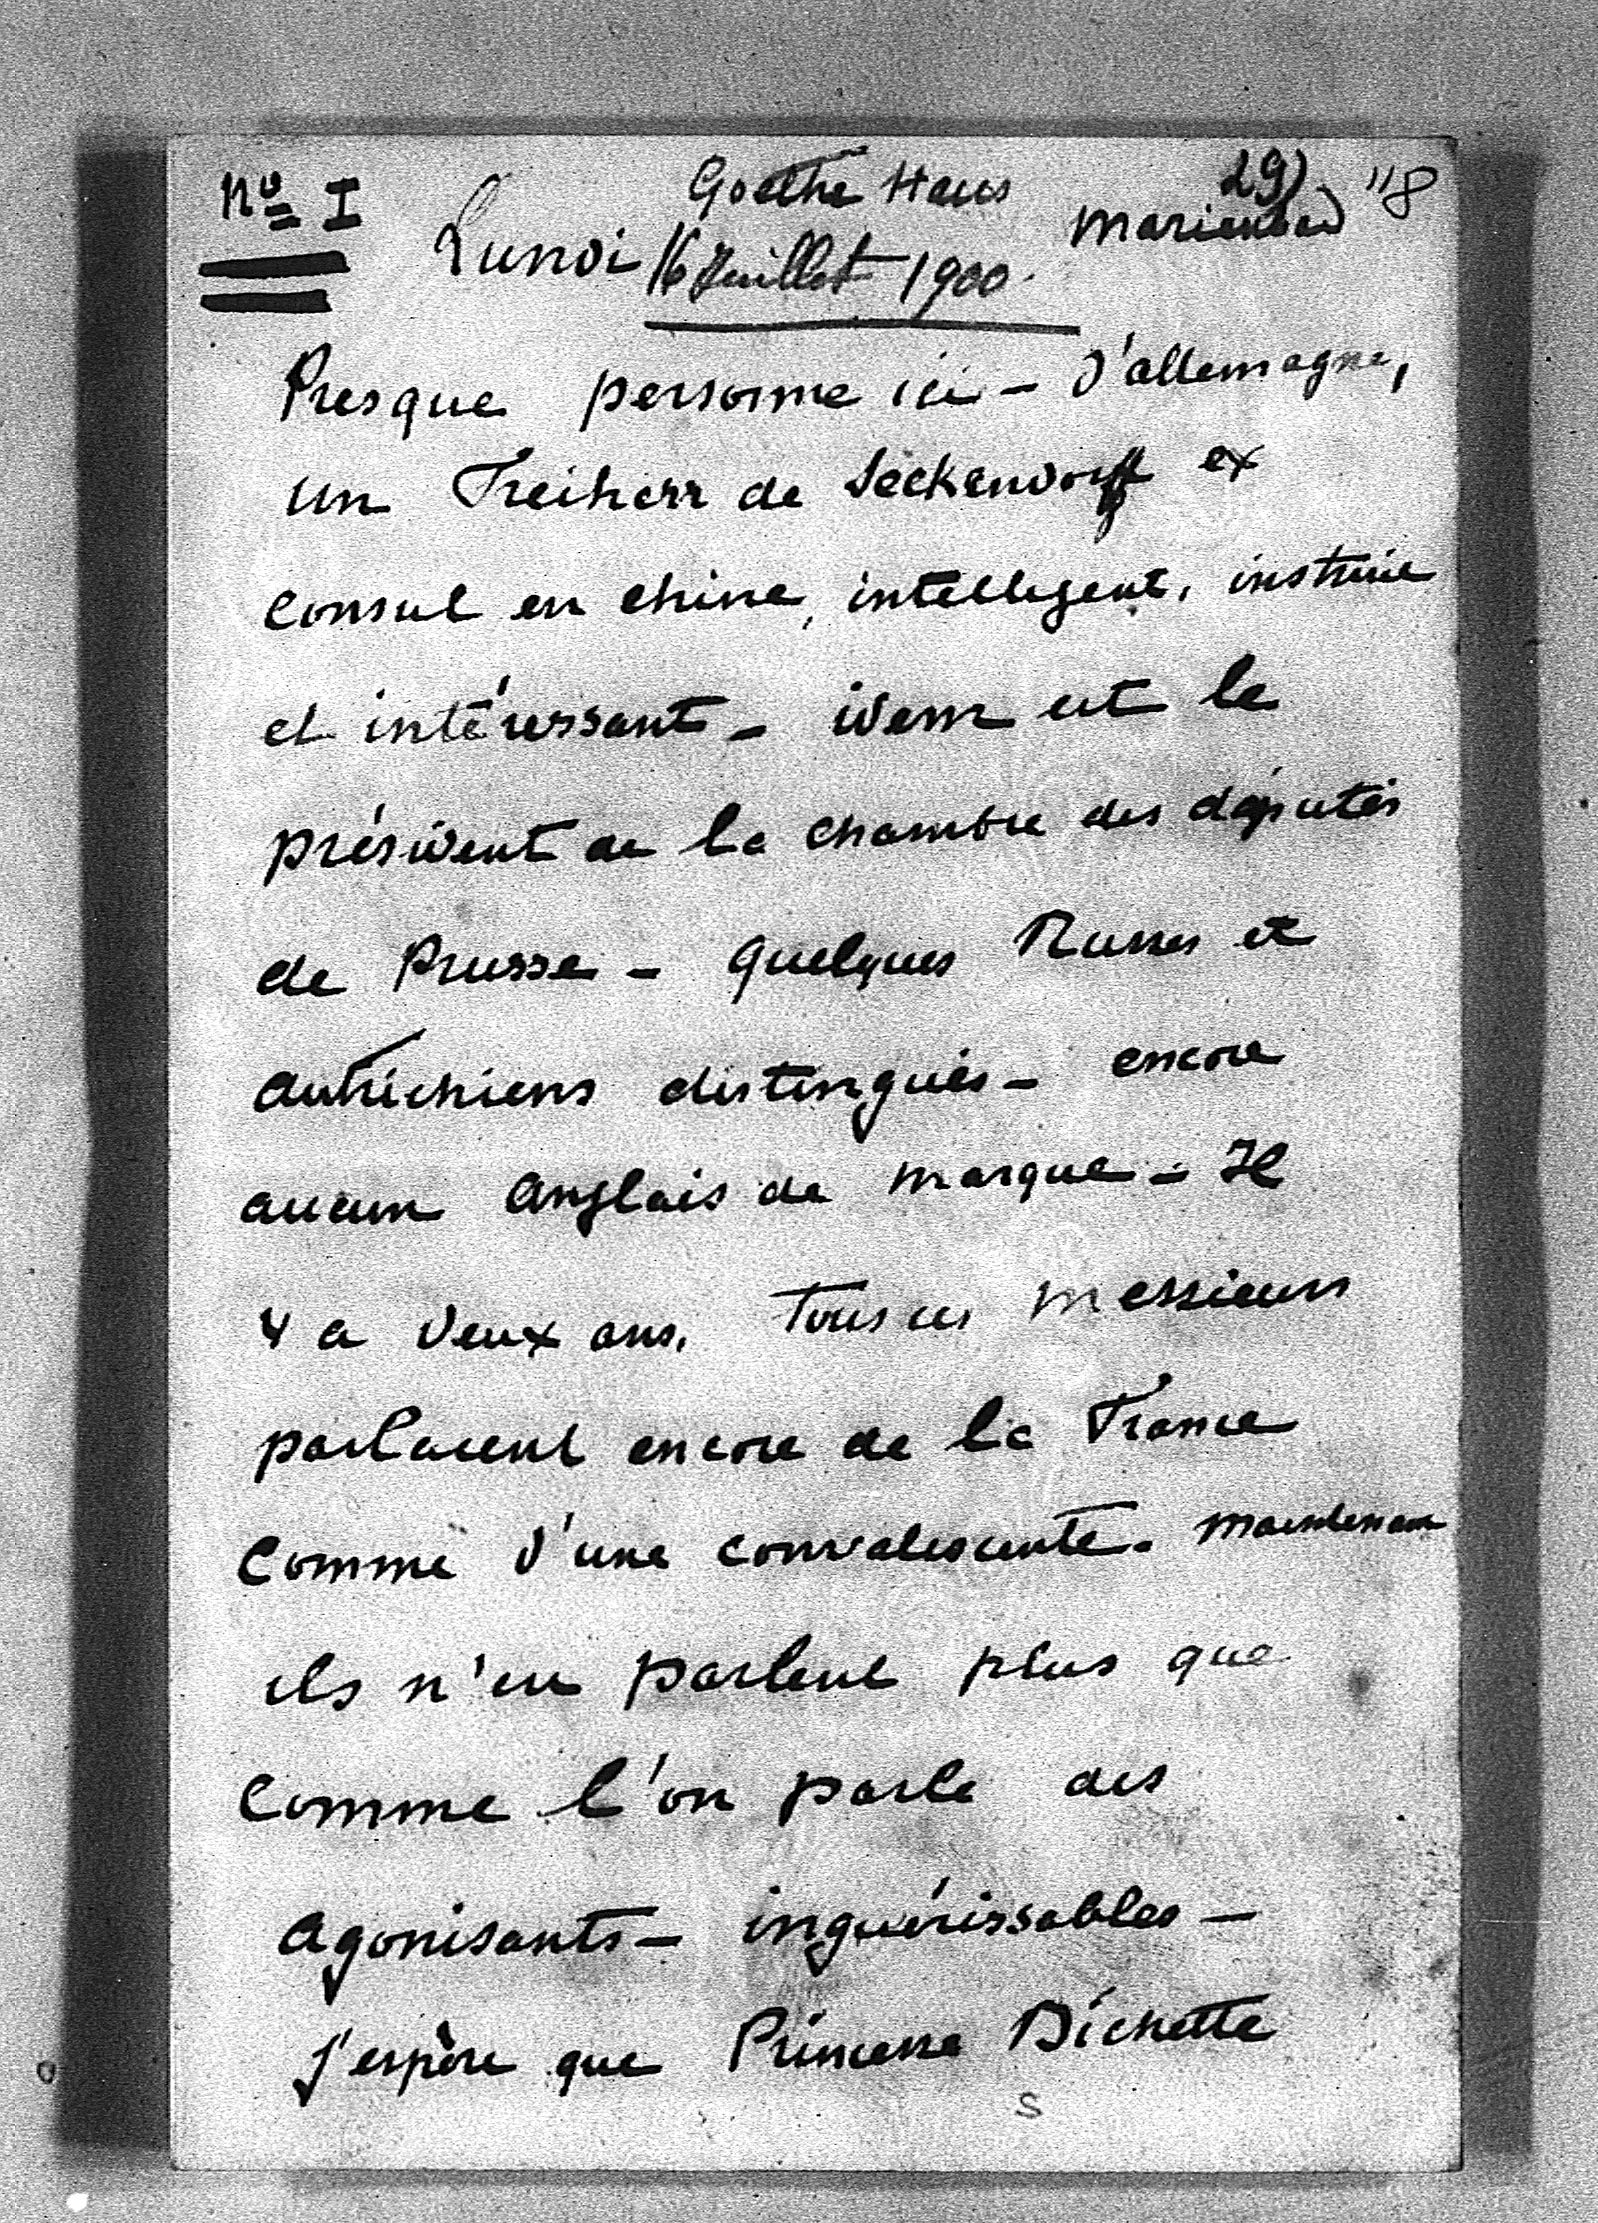 Nº I
Goethe Haus
29) 118
Marienbad
Lundi 16 Juillet 1900.
Presque personne ici - d'allemagne,
un Freiherr de Seckendorff ex
consul en Chine, intelligent, instruit
et intéressant - idem est le
président de la Chambre des députés
de Prusse - quelques Russes et
autrichiens distingués - encore
aucun Anglais de marque - Il
y a deux ans, tous ces messieurs
parlaient encore de la France
comme d'une convalescente. Maintenant
ils n'en parlent plus que
comme l'on parle des
agonisants - inguérissables -
J'espère que Princesse Bichette
S